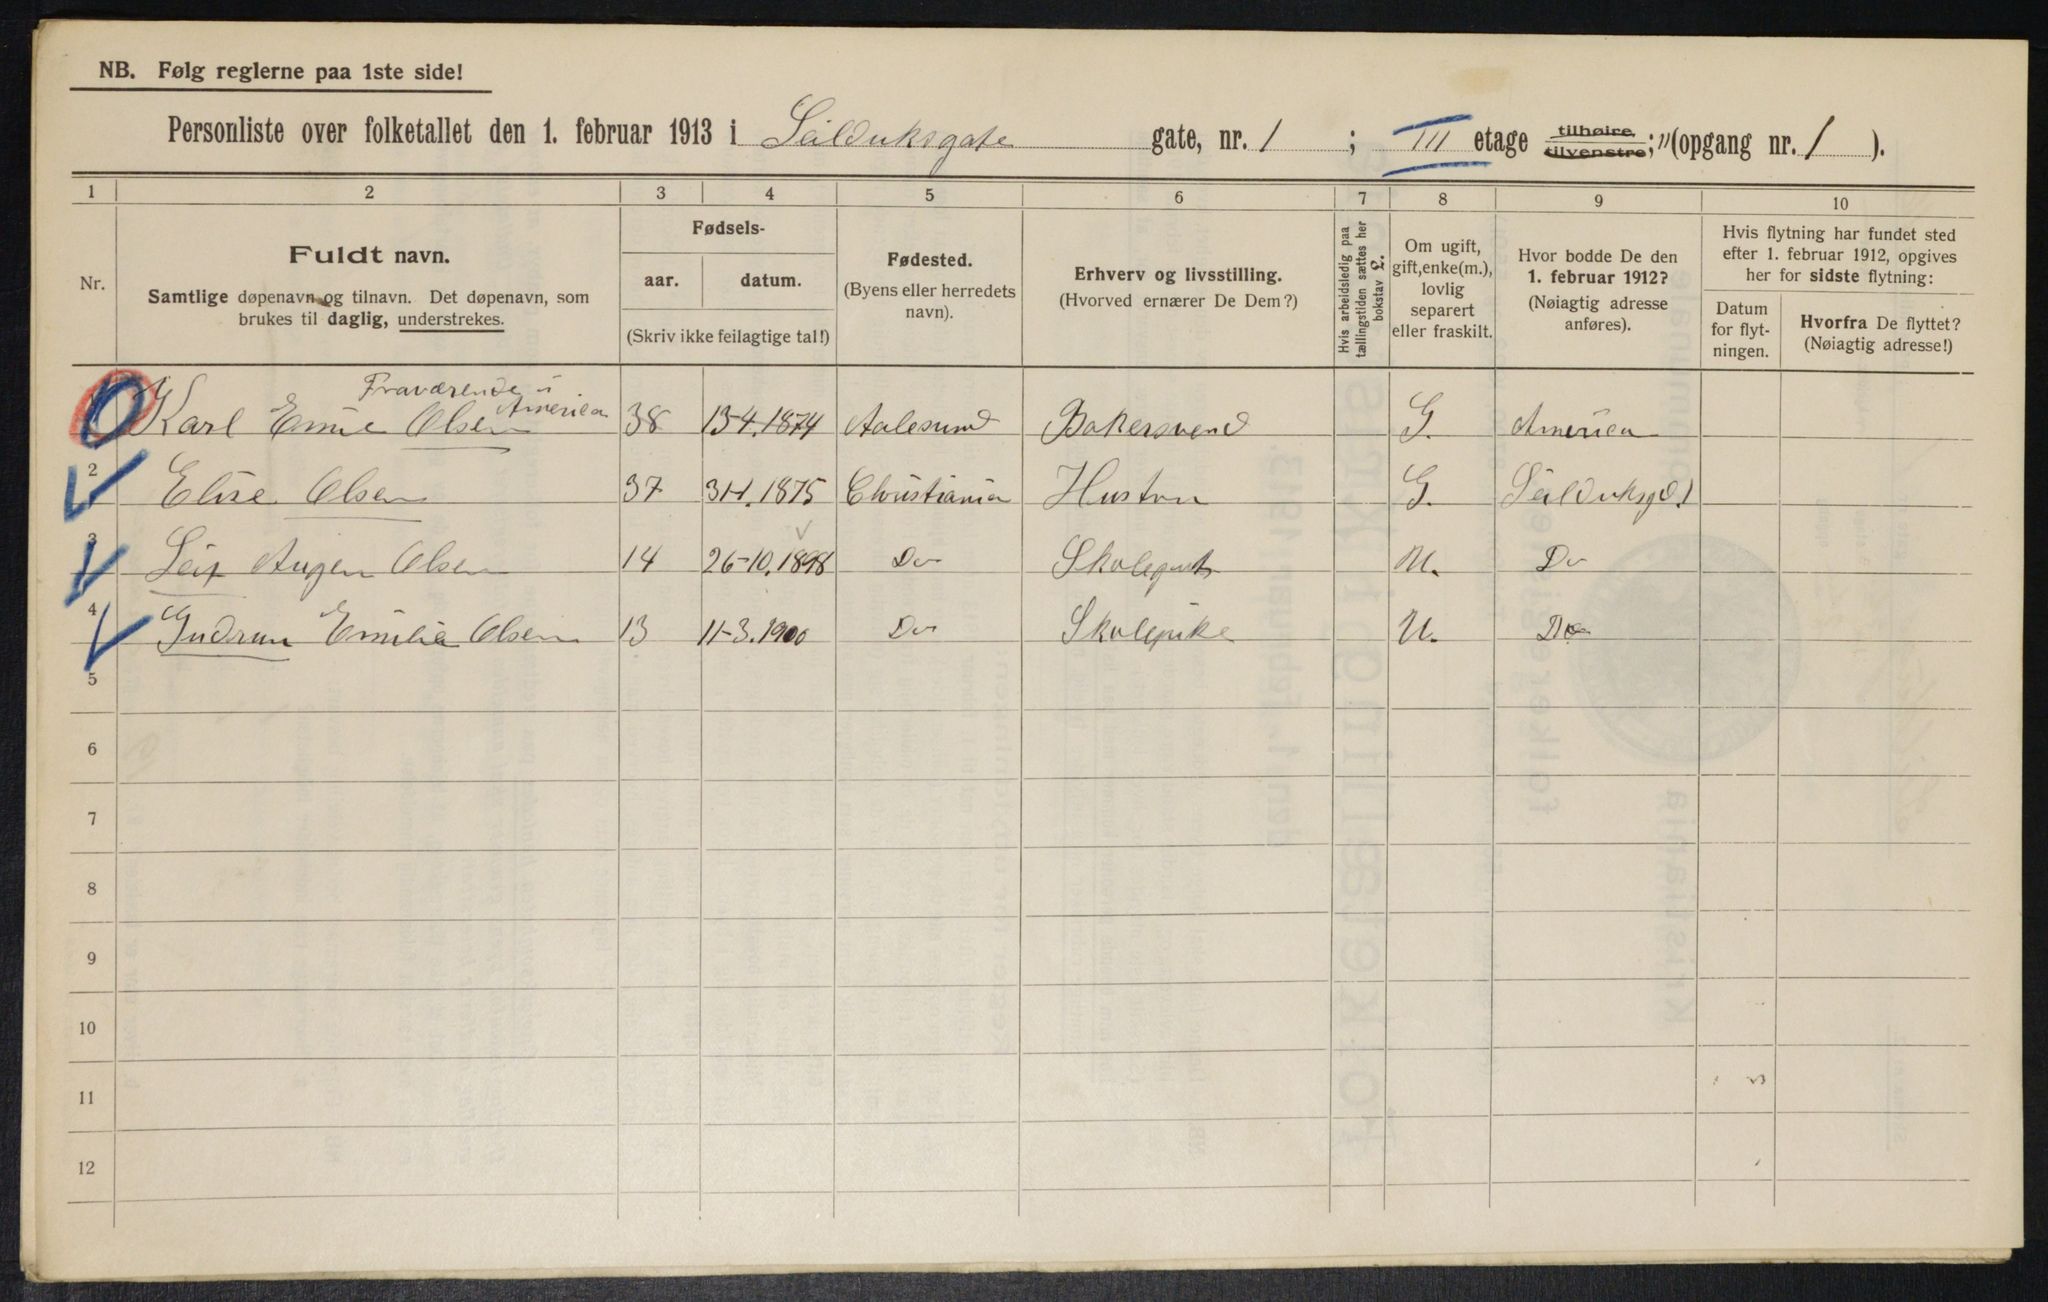 NB. Følg reglerne paa 1ste side!
Personliste over folketallet den 1. februar 1913 i Seilduksgate gate, nr. 1 ; III etage tilhøire tilvenstre; " (opgang nr. 1 ).
1 2 3 4 5 6 7 8 9 10
Nr.
Fuldt navn.
Samtlige døpenavn og tilnavn. Det døpenavn, som
brukes til daglig, understrekes.
Fødsels-
aar. datum.
(Skriv ikke feilagtige tal!)
Fødested.
(Byens eller herredets
navn).
Erhverv og livsstilling.
(Hvorved ernærer De Dem?)
Hvis arbeidsledig paa
tællingstiden sættes her
bokstav L.
Om ugift,
gift, enke(m.),
lovlig
separert
eller fraskilt.
Hvor bodde De den
1. februar 1912?
(Nøiagtig adresse
anføres).
Hvis flytning har fundet sted
efter 1. februar 1912, opgives
her for sidste flytning:
Datum
for flyt-
ningen.
Hvorfra De flyttet?
(Nøiagtig adresse!)
Fraværende i
America
Karl Emil Olsen 38 13-4.1874 Aalesund Bakersvend G. America
2 Elise Olsen 37 1875 Christiania Hustru G. Seilduksgd 1
3 Leif Olsen 14 26-10.1898 Do Skolegut U. Do
4 Gudrun Emilie Olsen 13 11-3.1900 Do Skolepike U. Do
5
6
7
8
9
10
11
12